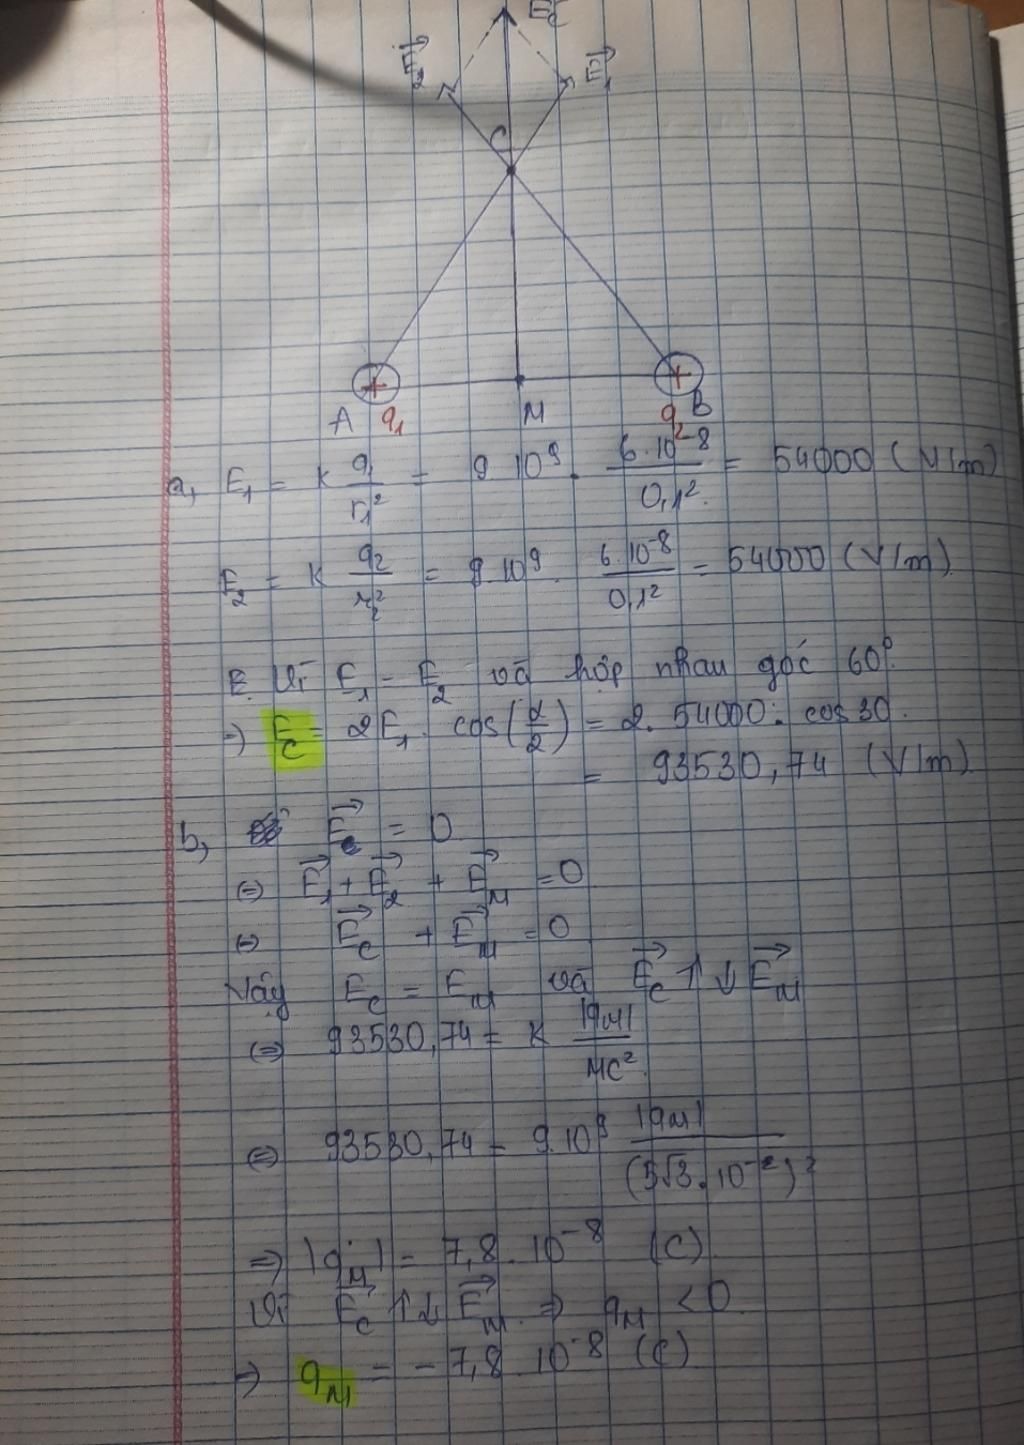 E⃗c
E⃗₂ E⃗₁
C
A q₁ M q₂ B
a, E₁ = k q₁/r₁² = 9.10⁹ . 6.10⁻⁸/0,1² = 54000 (V/m)
E₂ = k q₂/r₂² = 9.10⁹ . 6.10⁻⁸/0,1² = 54000 (V/m)
Vì E₁ = E₂ và hợp nhau góc 60°.
→ E_C = 2E₁ . cos(α/2) = 2. 54000 . cos 30
= 93530,74 (V/m)
b, E⃗c = 0
⇔ E⃗₁ + E⃗₂ + E⃗_M = 0
⇔ E⃗_C + E⃗_M = 0
Vậy E_C = E_M và E⃗_C ↑↓ E⃗_M
⇔ 93530,74 = k |q_M|/MC²
⇔ 93530,74 = 9.10⁹ |q_M|/(5√3.10⁻²)²
⇒ |q_M| = 7,8.10⁻⁸ (C)
Vì E⃗_C ↑↓ E⃗_M ⇒ q_M < 0
→ q_M = - 7,8.10⁻⁸ (C)